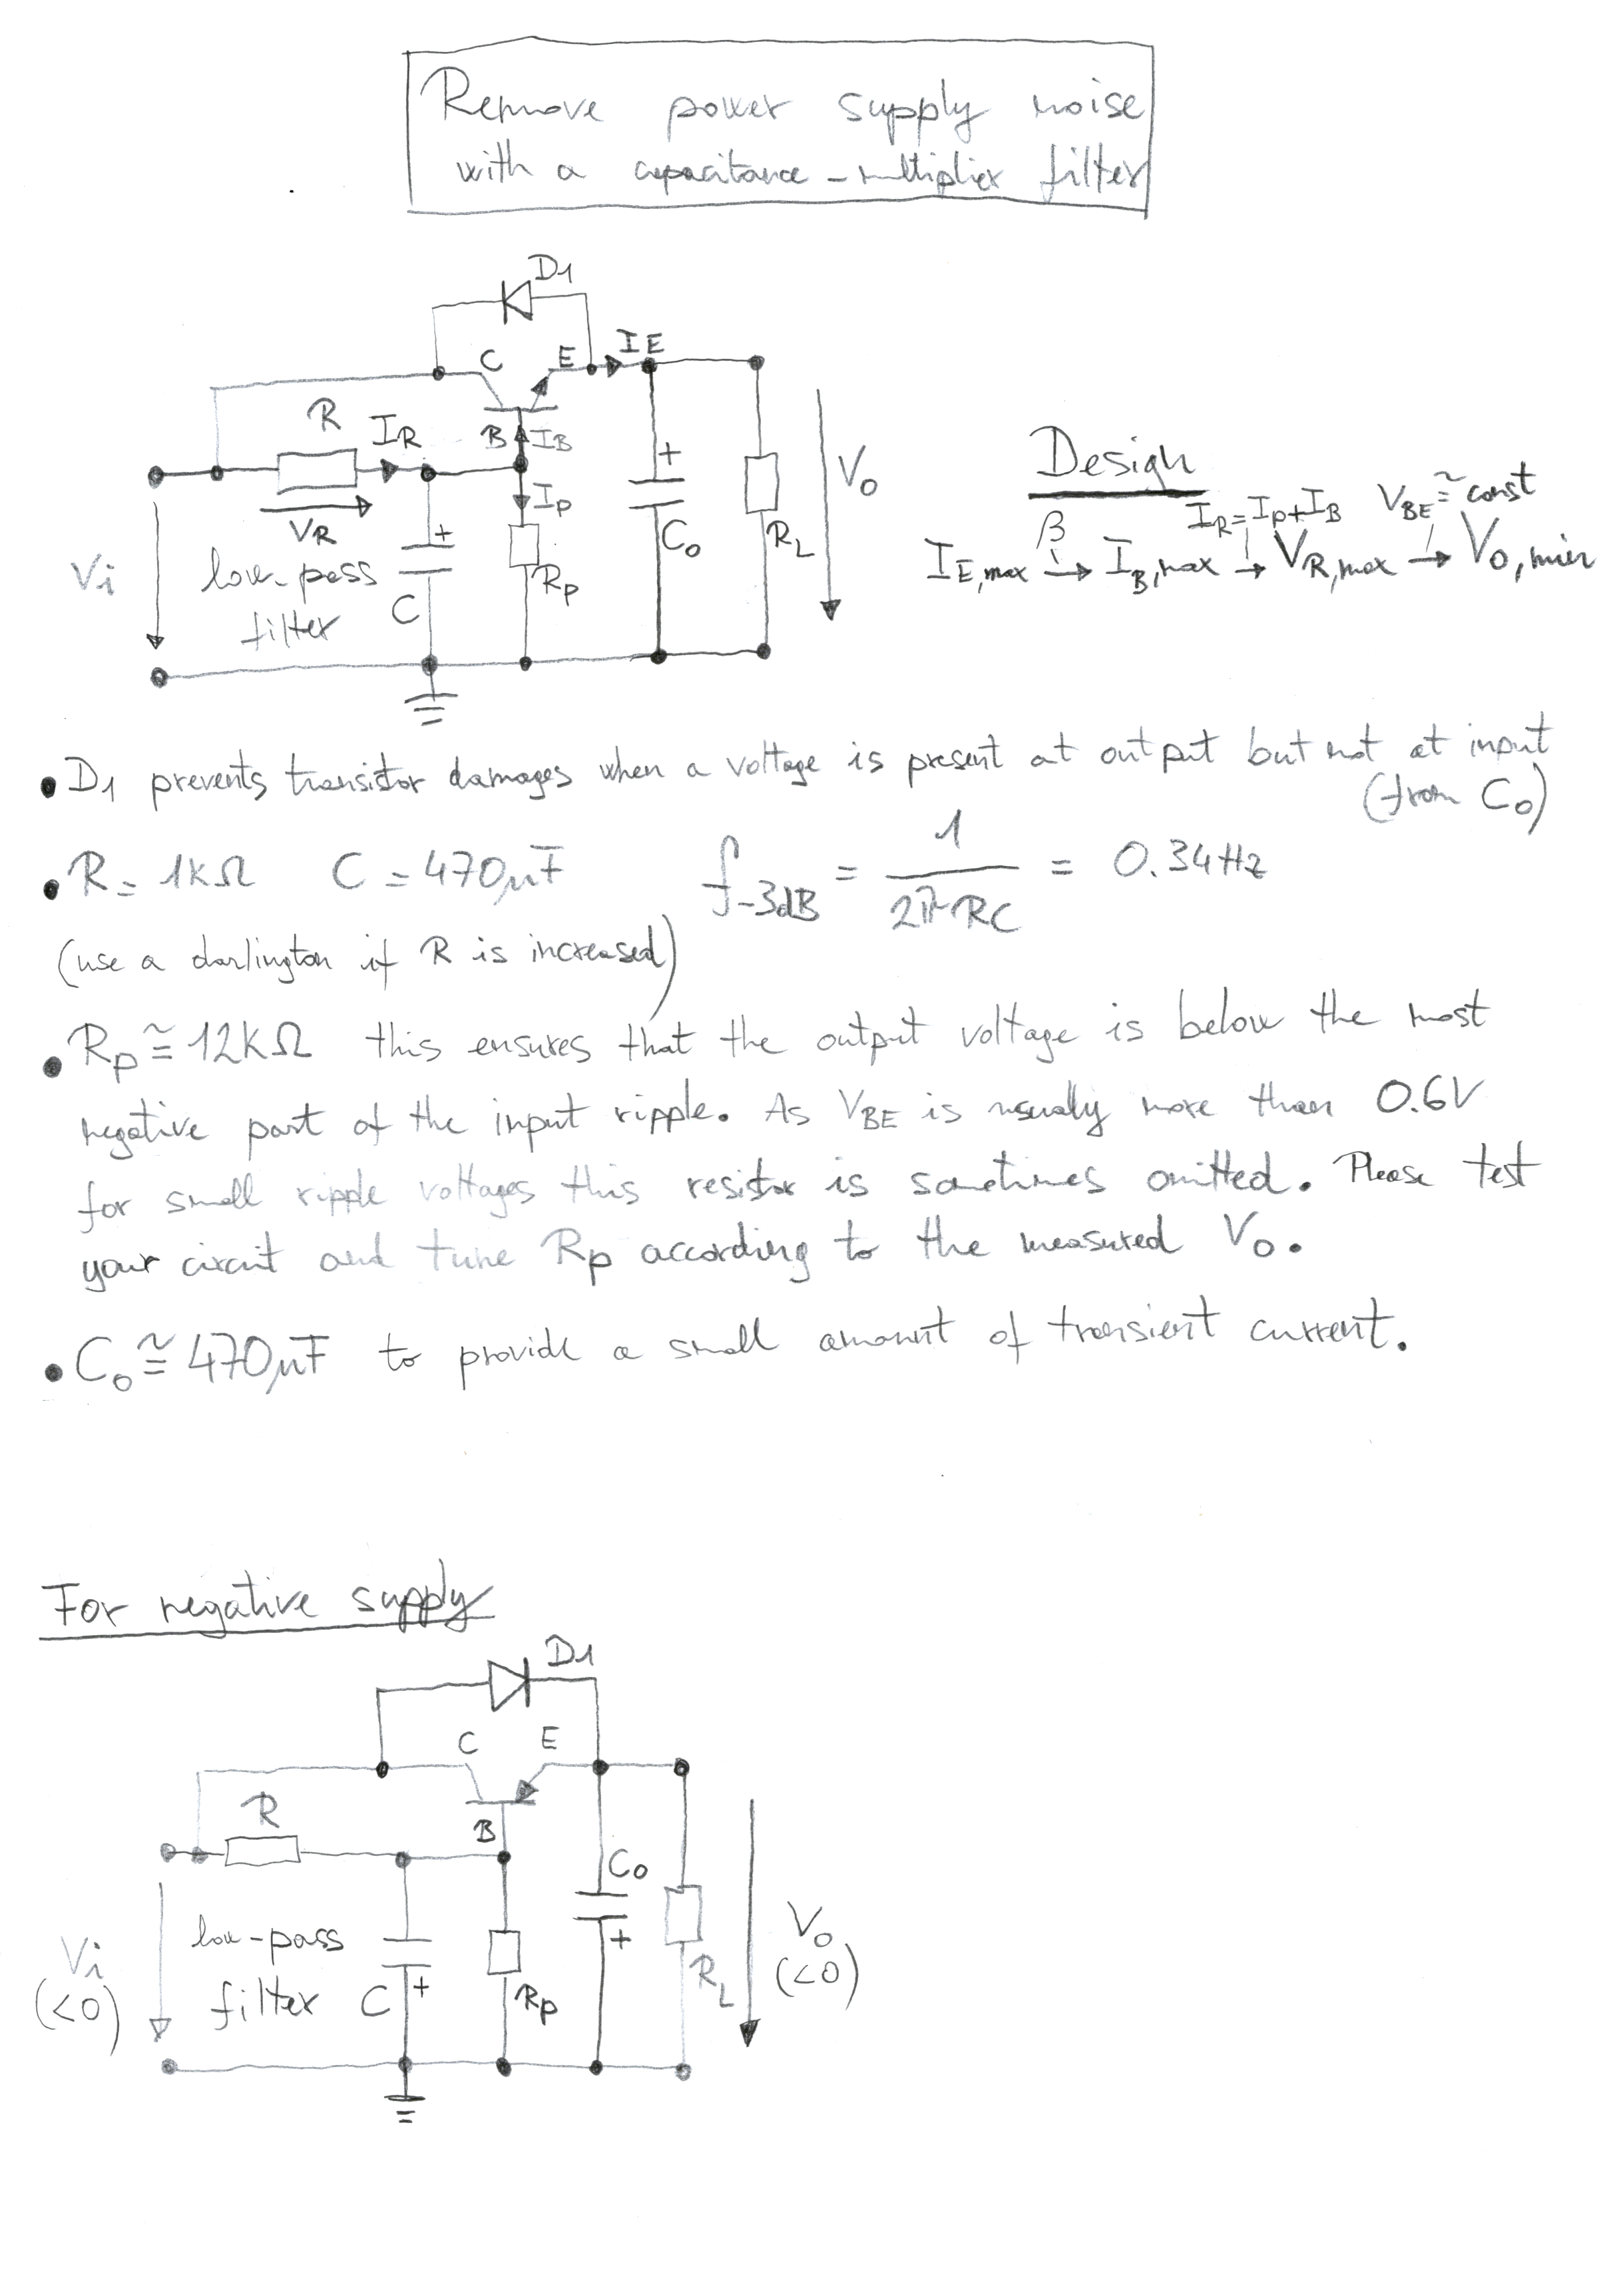 Remove power supply noise
with a capacitance-multiplier filter
D1
C E IE
R IR B IB
VR
IP
+ +
Vi
low-pass
filter
C RP C0 RL V0
Design
β IR=IP+IB VBE≅const
IE,max → IB,max → VR,max → V0,min
• D1 prevents transistor damages when a voltage is present at output but not at input
(from C0)
• R = 1kΩ C = 470µF f-3dB = 1/(2πRC) = 0.34Hz
(use a darlington if R is increased)
• RP ≅ 12kΩ this ensures that the output voltage is below the most
negative part of the input ripple. As VBE is usually more than 0.6V
for small ripple voltages this resistor is sometimes omitted. Please test
your circuit and tune RP according to the measured V0.
• C0 ≅ 470µF to provide a small amount of transient current.
For negative supply
D1
C E
R
B
C0
Vi
(<0)
low-pass
filter C + RP + RL
V0
(<0)